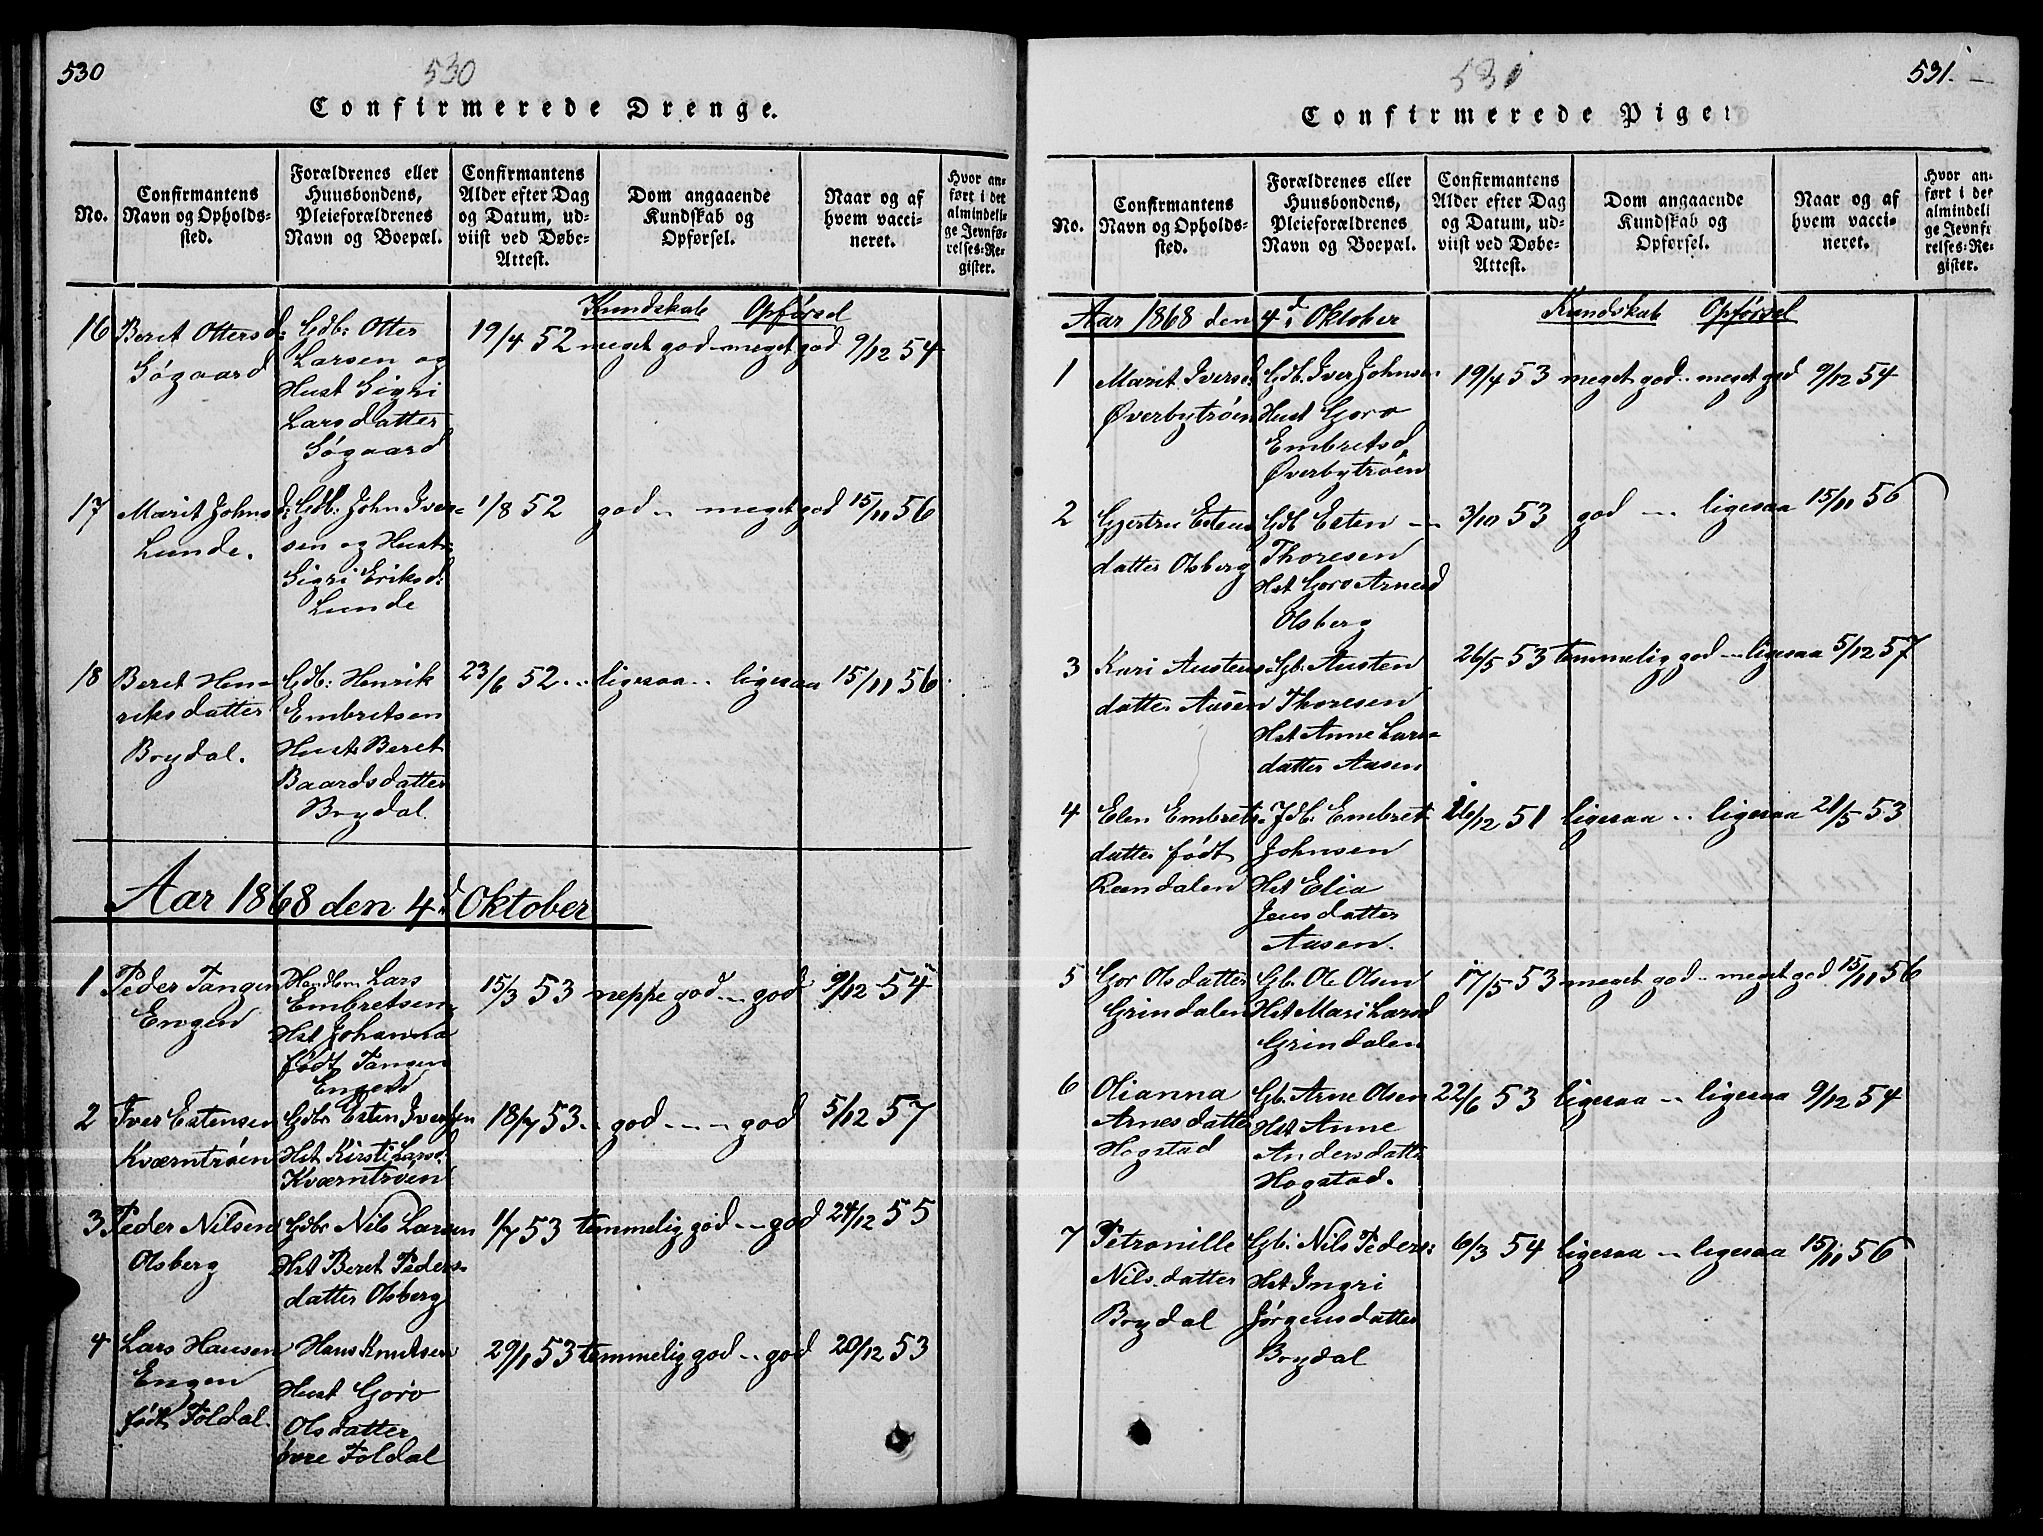 530
530
Confirmerede Drenge.
No.
Confirmantens
Navn og Opholds-
sted.
Forældrenes eller
Huusbondens,
Pleieforældrenes
Navn og Boepæl.
Confirmantens
Alder efter Dag
og Datum, ud-
viist ved Døbe-
Attest.
Dom angaaende
Kundskab og
Opførsel.
Naar og af
hvem vacci-
neret.
Hvor an-
ført i det
almindeli-
ge Jevnfø-
relses-Re-
gister.
Kundskab Opførsel
16 Beret Ottersd: Gdb: Otter 19/4 52 meget god - meget god 9/12 54
Søgaard Larsen og
Hust Sigri
Larsdatter
Søgaard
17 Marit Johnsd: Gdb: John Iver- 1/8 52 god - meget god 15/11 56
Lunde. sen og Hust:
Sigri Eriksd:
Lunde
18 Beret Hen- Gdb: Henrik 23/6 52 ligesaa ligesaa 15/11 56
riksdatter Embretsen
Brydal. Hust: Beret
Baardsdatter
Brydal.
Aar 1868 den 4d Oktober
1 Peder Tangen Lars 15/3 53 neppe god - god 9/12 54
Engen Embretsen
Hst Johanna
født Tangen
Engen
2 Iver Estensen Gdbr Esten Iversen 18/7 53 god - god 5/12 57
Kværntrøen Hst Kirsti Larsd.
Kværntrøen
3 Peder Nilsen Gdbr Nils Larsen 1/7 53 temmelig god - god 24/12 55
Olsberg Hst Beret Peders-
datter Olsberg
4 Lars Hansen Hans Knutsen 29/1 53 temmelig god - god 20/12 53
Engen Hust Goro
født Foldal. Olsdatter
øvre Foldal
531
531.
Confirmerede Piger
No.
Confirmantens
Navn og Opholds-
sted.
Forældrenes eller
Huusbondens,
Pleieforældrenes
Navn og Boepæl.
Confirmantens
Alder efter Dag
og Datum, ud-
viist ved Døbe-
Attest.
Dom angaaende
Kundskab og
Opførsel.
Naar og af
hvem vacci-
neret.
Hvor an-
ført i det
almindeli
ge Jevnfø
relses-Re-
gister.
Aar 1868 den 4d Oktober Kundskab Opførsel
1 Marit Iversd Gdb. Iver Johnsen 19/4 53 meget god - meget god 9/12 54
Øverbytrøen Hust Goro
Embretsd
Øverbytrøen
2 Gjertru Estens Gdb Esten 3/10 53 god - ligesaa 15/11 56
datter Olsberg Thoresen
Hst Goro Arnesd
Olsberg
3 Kari Austens Gb. Austen 26/5 53 temmelig god - ligesaa 5/12 57
datter Aasen Thoresen
Hst Anne Lars-
datter Aasen
4 Elen Embrets- Jdb: Embret 16/12 51 ligesaa ligesaa 21/5 53
datter født Johnsen
Reendalen Hst Elia
Jensdatter
Aasen.
5 Gor Olsdatter Gb. Ole Olsen 17/5 53 meget god - meget god 15/11 56
Grindalen Hst Mari Larsd
Grindalen
6 Olianna Gb. Arne Olsen 22/6 53 ligesaa - ligesaa 9/12 54
Arnesdatter Hst Anne
Hogstad Andersdatter
Hogstad.
7 Petronille Gb: Nils Peders: 6/3 54 ligesaa - ligesaa 15/11 56
Nilsdatter Hst Ingri
Brydal Jørgensdatter
Brydal